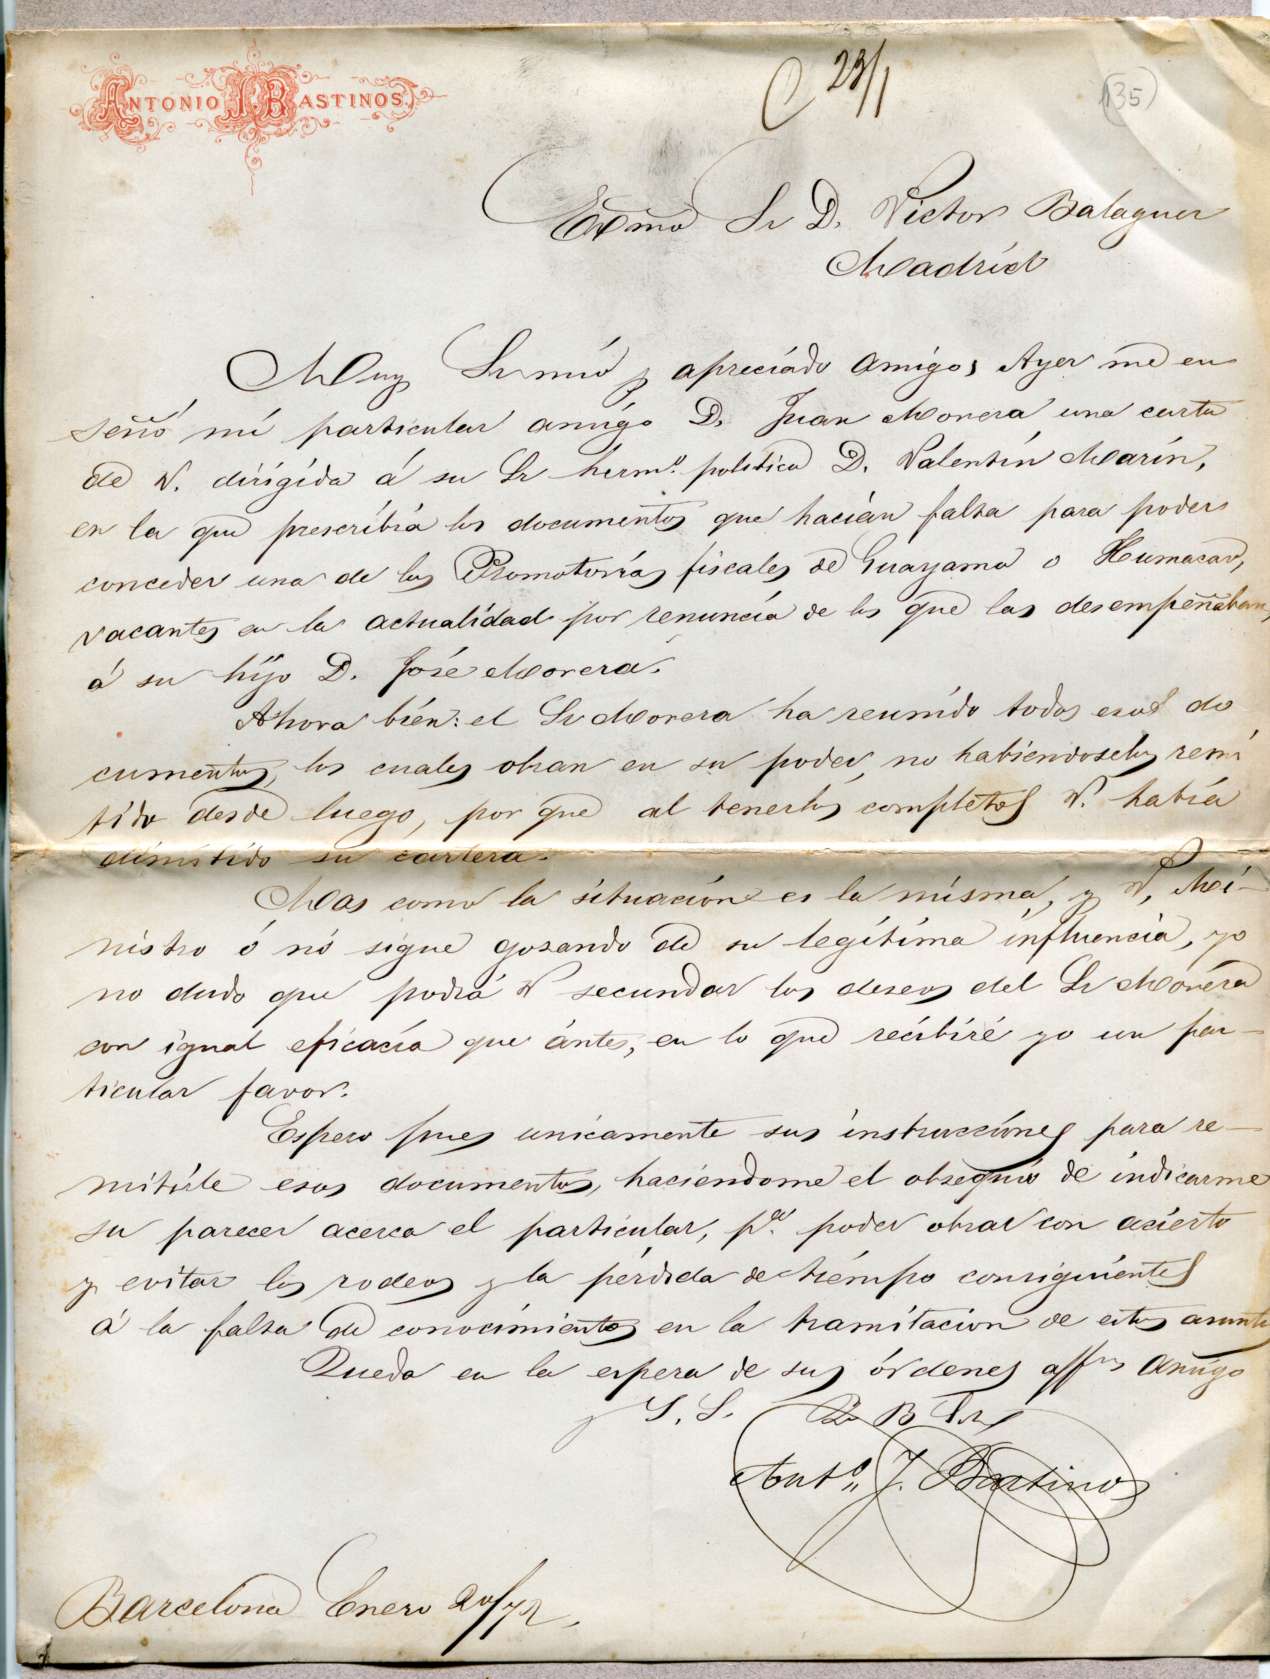 ANTONIO J. BASTINOS.
C 23/1
135
Exmo Sr D. Victor Balaguer
Madrid
Muy Sr mío y apreciado amigo; Ayer me en
señó mi particular amigo D. Juan Morera una carta
de V. dirigida á su Sr hermº. político D. Valentín Marín,
en la que prescribía los documentos que hacían falta para poder
conceder una de las Promotorías fiscales de Guayama o Humacao,
vacantes en la actualidad por renuncia de los que las desempeñaban,
á su hijo D. José Morera.
Ahora bien: el Sr Morera ha reunido todos esos do
cumentos, los cuales obran en su poder, no habiendoselos remi
tido desde luego, por que al tenerlos completos V. había
dimitido su cartera.
Mas como la situación es la misma, y V, Mi-
nistro ó nó sigue gozando de su legítima influencia, yo
no dudo que podrá V secundar los deseos del Sr Morera
con igual eficacia que ántes, en lo que recibiré yo un par-
ticular favor.
Espero pues unicamente sus instrucciones para re-
mitirle esos documentos, haciéndome el obsequio de indicarme
su parecer acerca el particular, pª. poder obrar con acierto
y evitar los rodeos y la pérdida de tiempo consiguientes
á la falta de conocimientos en la tramitacion de estos asuntos
Queda en la espera de sus órdenes affmo amigo
y S. S. Q B S M
Antº. J. Bastinos
Barcelona Enero 20/72.